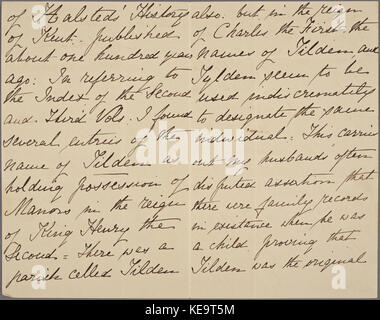 of Halsteds' History
of Kent. published
about one hundred years
ago: In referring to
the Index of the Second
and Third Vols. I found
several entries of the
name of Tilden as
holding possession of
Manors in the reign
of King Henry the
Second = There was a
parish called Tilden
also. but in the reign
of Charles the First the
names of Tildem and
Tylden seem to be
used indiscrimately
to designate the same
individual. This carries
out my husband's often
disputed assertion that
there were family records
in existance when he was
a child proving that
Tilden was the original
alamy
alamy
KE9T5M